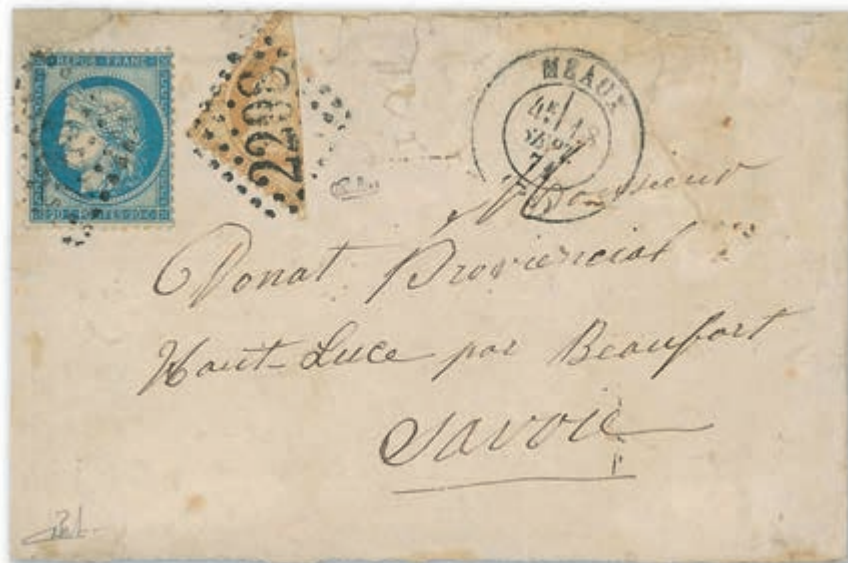 REPUB. FRANC.
20 C POSTES 20 C
2298
MEAUX
4E 18
SEPT
71
Monsieur
Donat Provincial
Haut-Luce par Beaufort
Savoie